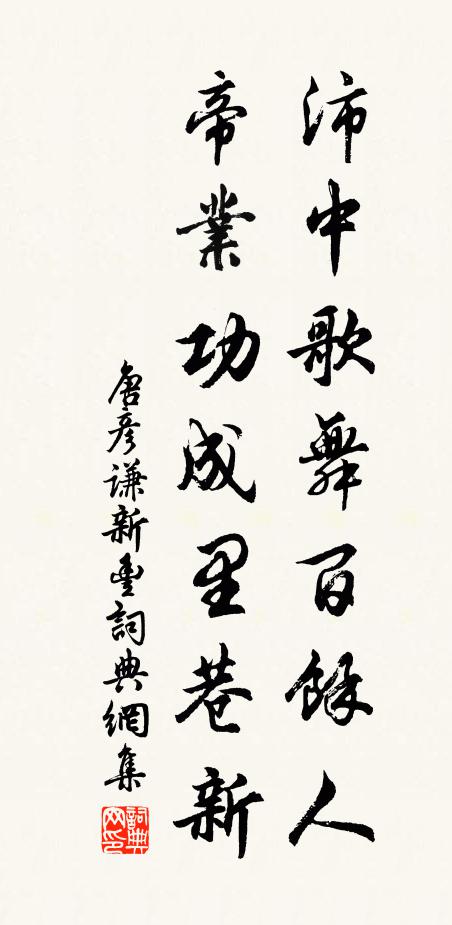 沛中歌舞百餘人
帝業功成里巷新
唐彥謙新豐詞典網集
詞典网印